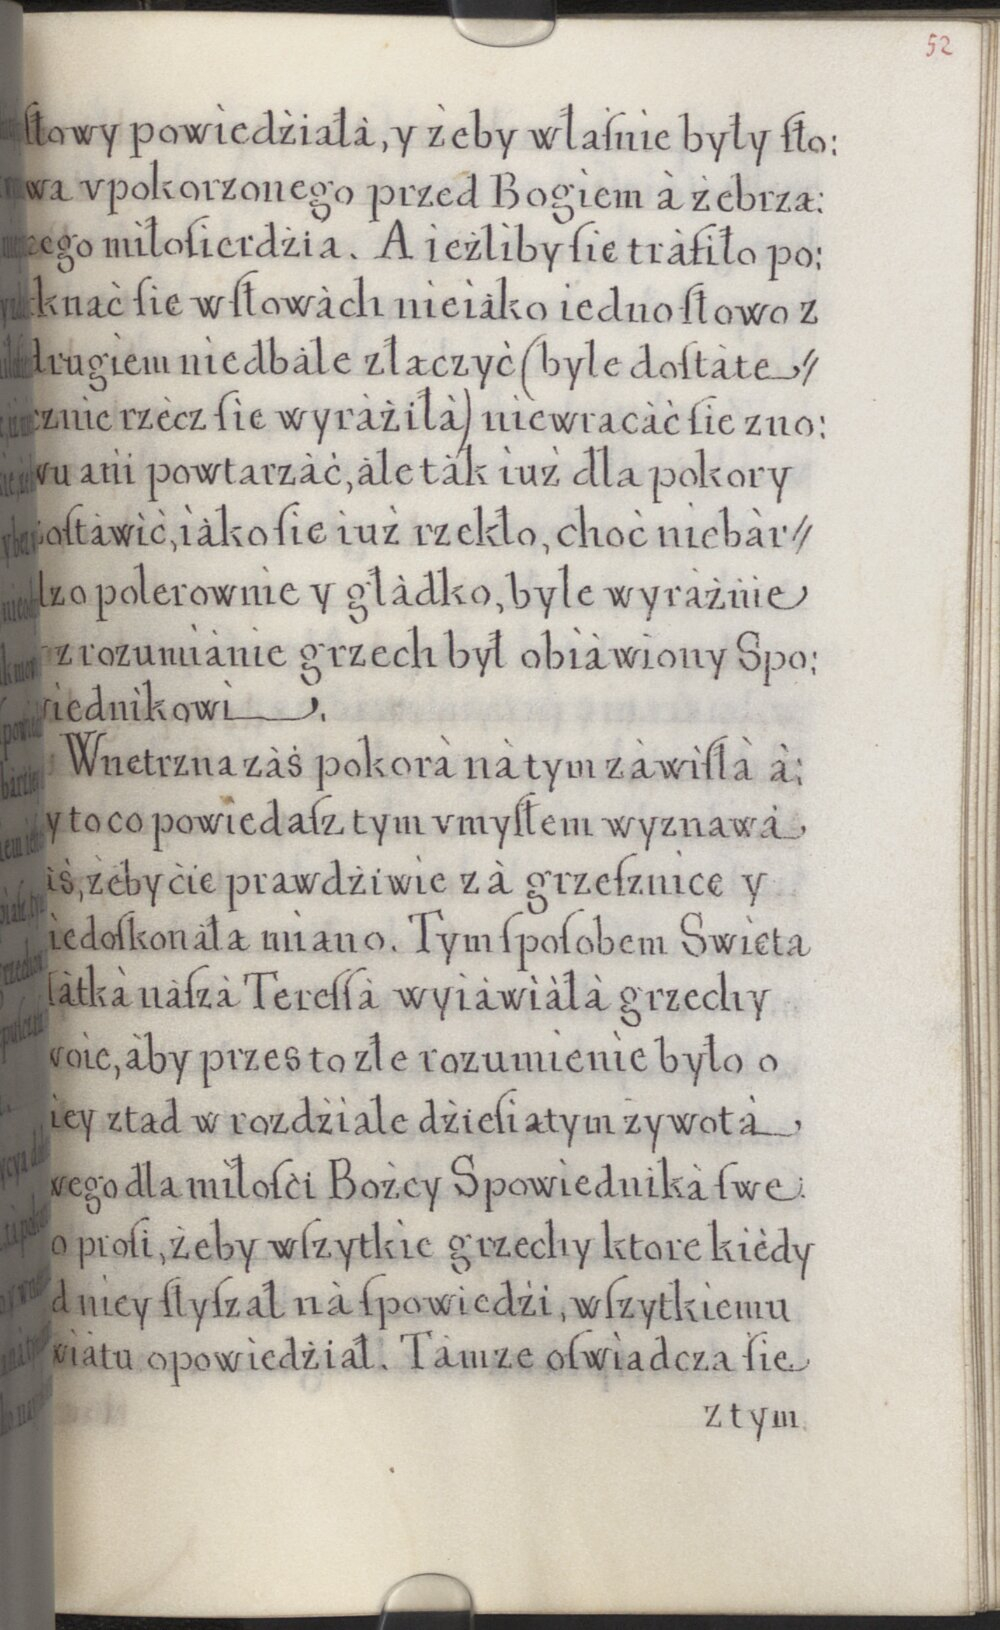 52
słowy powiedżiałà, y żeby właſnie były ſło:
wa vpokorzonego przed Bogiem à żebrzą:
cego miłoſierdżia. A ieżliby ſię tràfiło po:
tknąć ſię w ſłowàch nieiàko iedno ſłowo z
drugiem niedbàle złączyć (byle doſtàte//
cznie rzècz ſię wyràżiłà) niewracàć ſię zno:
wu ani powtarzàć, àle tàk iuż dla pokory
zoſtàwić, iàko ſię iuż rzekło, choć niebàr//
dzo polerownie y głàdko, byle wyràżnie
z rozumiànie grzech był obiàwiony Spo:
wiednikowi.
Wnętrzna zàś pokorà nà tym zàwiſłà à:
y to co powiedaſz tym vmyſłem wyznawà
iś, żeby cię prawdżiwie zà grzeſznicę y
iedoſkonàłą miano. Tym ſpoſobem Swięta
àtkà nàſzà Tereſſà wyiàwiàłà grzechy
woie, àby przes to złe rozumienie było o
iey ztąd w rozdżiale dżieſiątym żywotà
wego dla miłoſći Bożey Spowiednikà ſwe:
o proſi, żeby wſzytkie grzechy ktore kiedy
d niey ſłyſzał nà ſpowiedżi, wſzytkiemu
wiàtu opowiedżiał. Tàmże oſwiadcza ſię
z tym